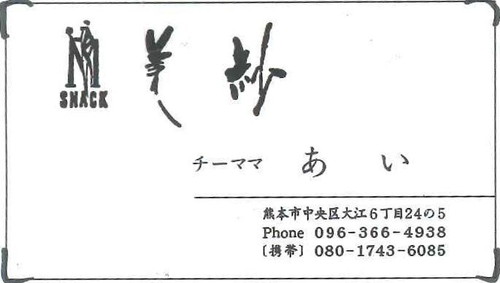 SNACK 美紗
チーママ あい
熊本市中央区大江6丁目24の5
Phone 096-366-4938
〔携帯〕 080-1743-6085